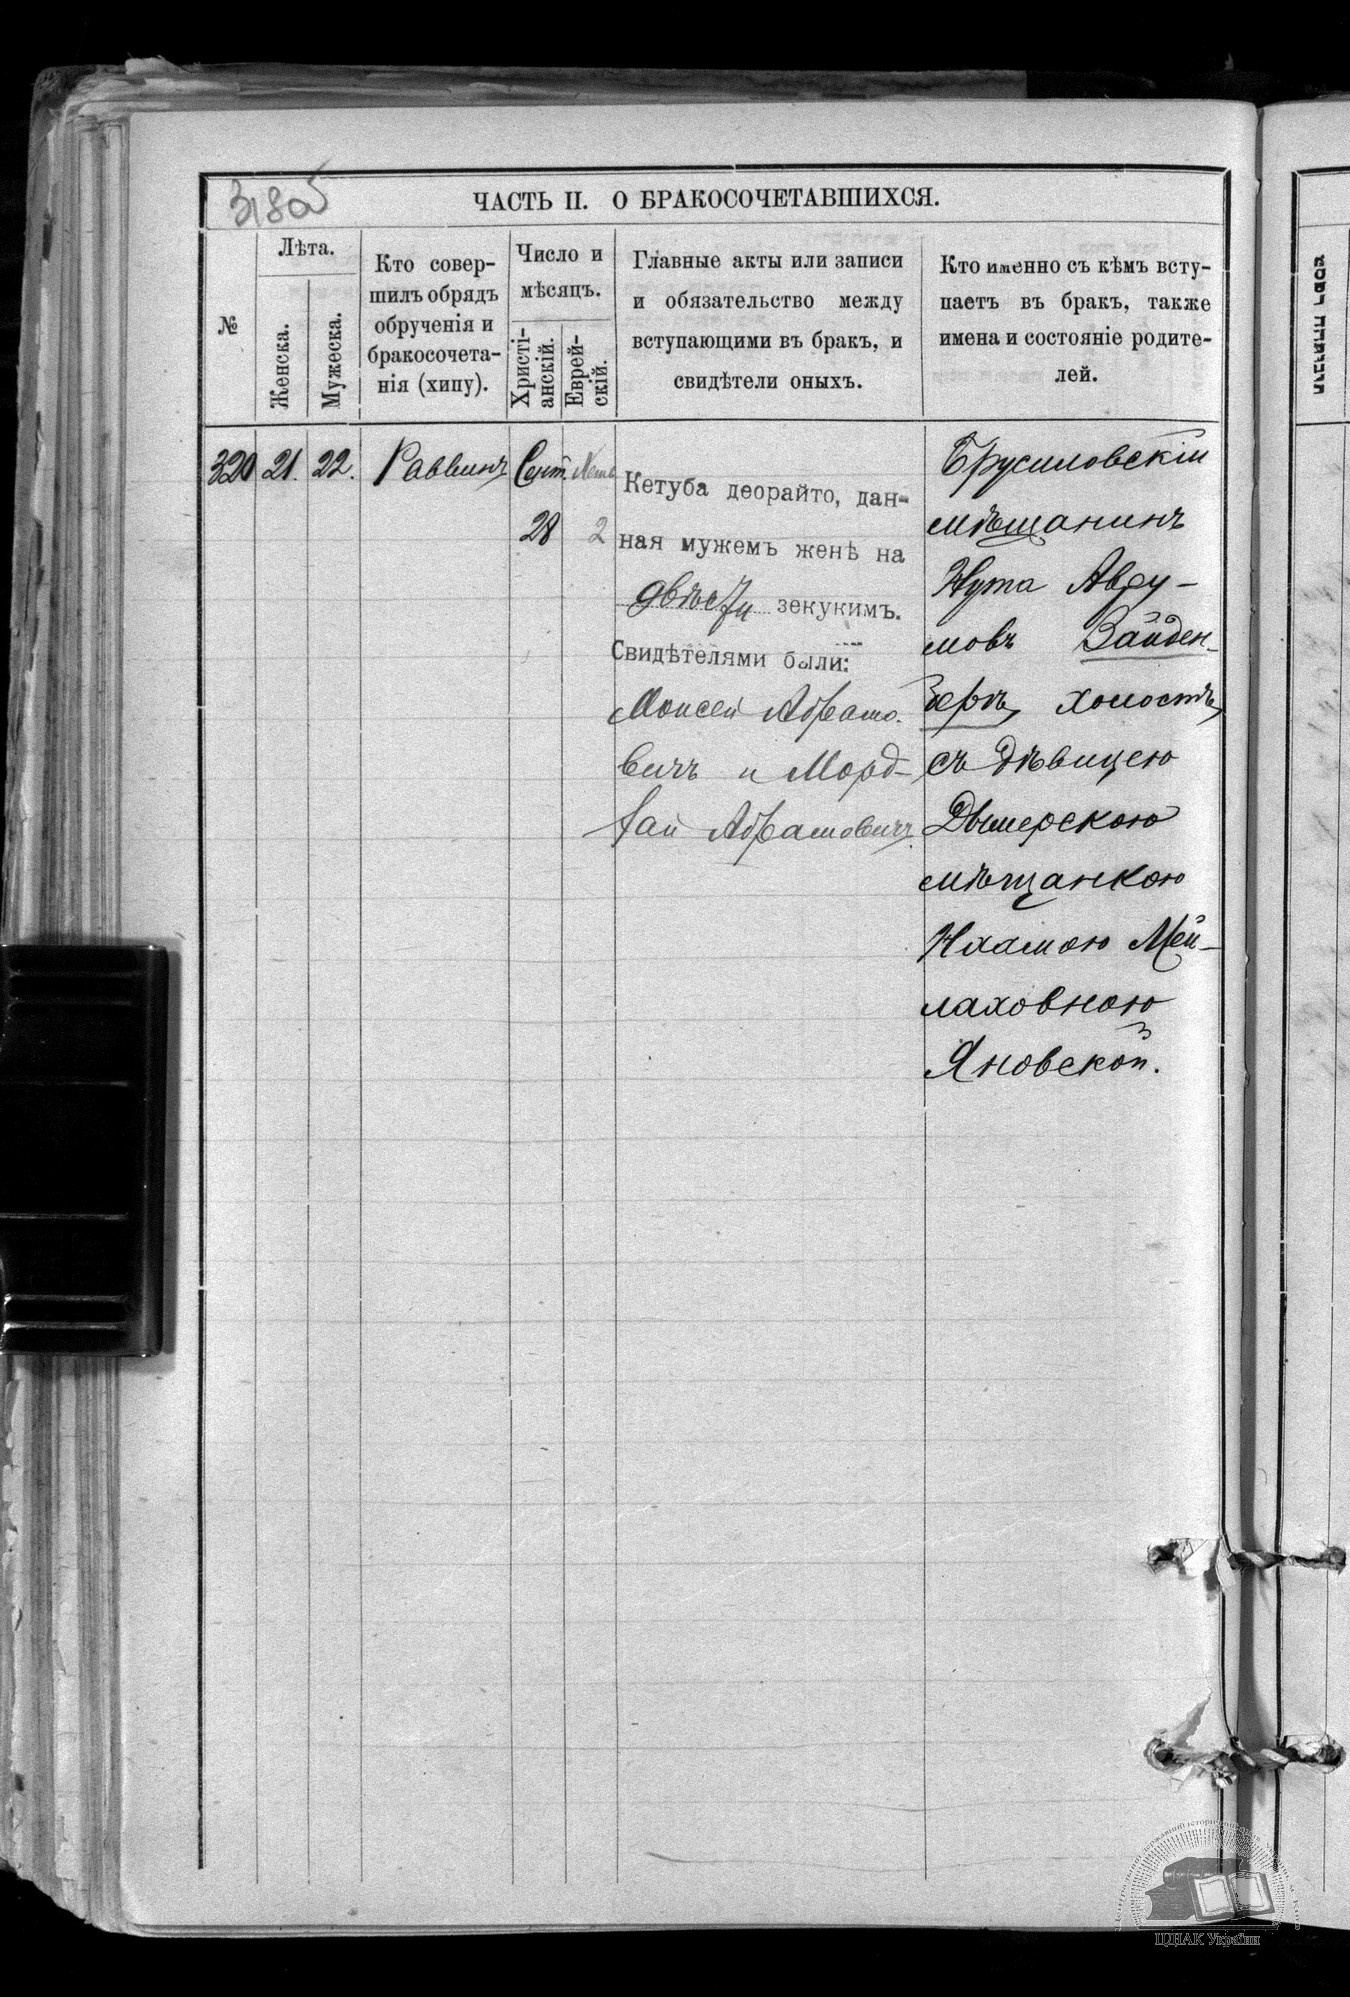 318об
ЧАСТЬ II. О БРАКОСОЧЕТАВШИХСЯ.
№
Лѣта.
Женска.
Мужеска.
Кто совер-
шилъ обрядъ
обрученія и
бракосочета-
нія (хипу).
Число и
мѣсяцъ.
Христі-
анскій.
Еврей-
скій.
Главные акты или записи
и обязательство между
вступающими въ бракъ, и
свидѣтели оныхъ.
Кто именно съ кѣмъ всту-
паетъ въ бракъ, также
имена и состояніе родите-
лей.
320
21.
22.
Раввинъ
Сент.
28
2
Кетуба деорайто, дан-
ная мужемъ женѣ на
двѣсти зекукимъ.
Свидѣтелями были:
Моисей Абрамо-
вичъ и Морд-
хай Абрамовичъ.
Брусиловскій
мѣщанинъ
Нута Авру-
мовъ Вайден-
беръ, холостъ,
съ дѣвицею
Дымерскою
мѣщанкою
Нхамою Мей-
лаховною
Яновской.
ЦДІАК України